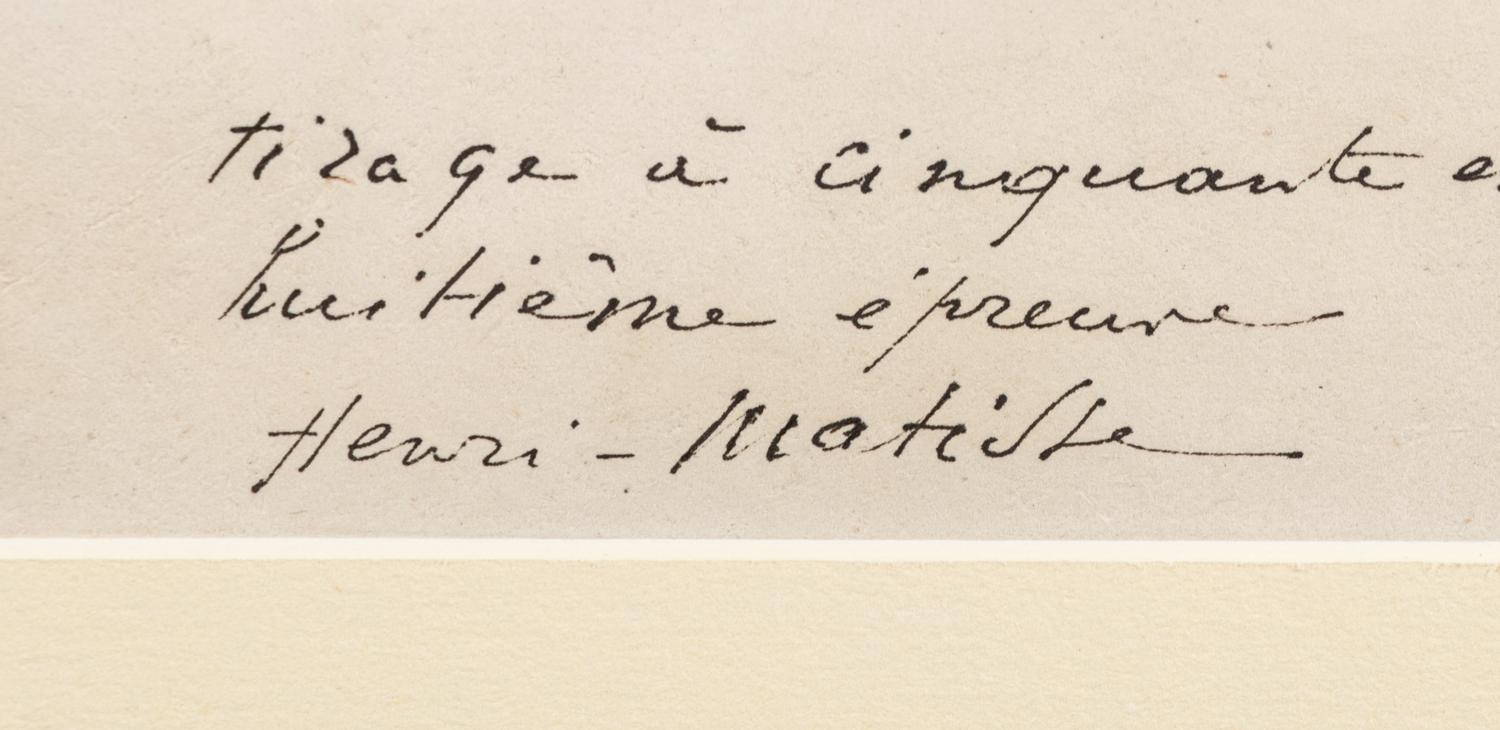 tirage à cinquante
huitième épreuve
Henri-Matisse